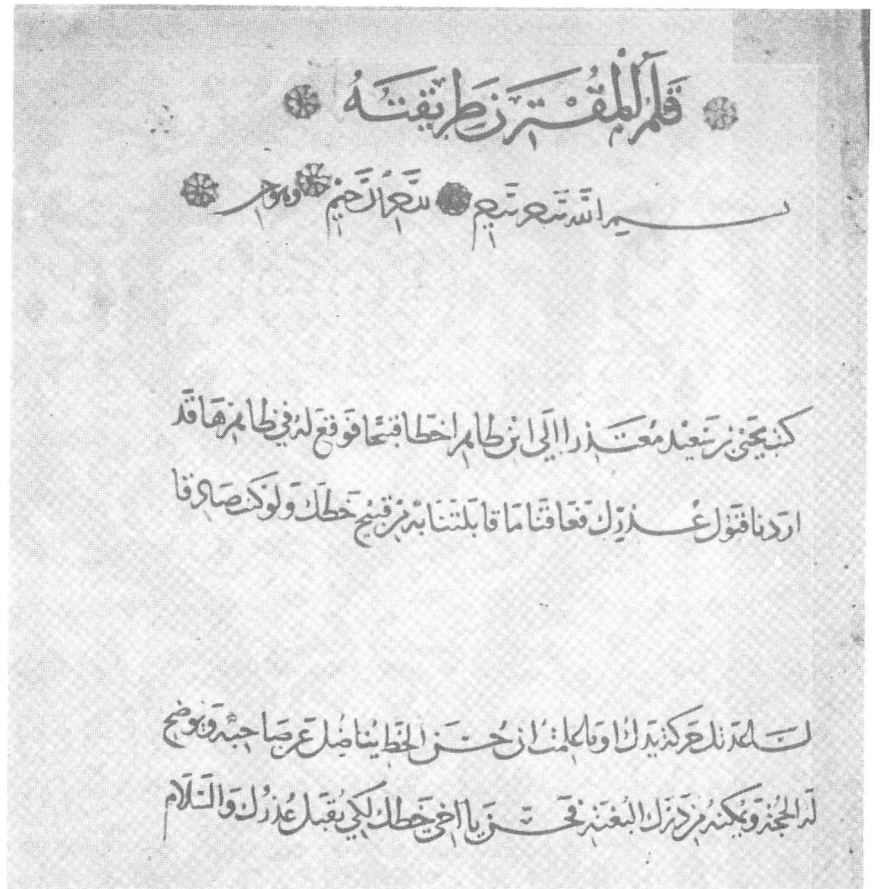 قلم المقترن طريقته
بسم الله
كتب يحيى بن سعيد معتذرا إلى ابن طاهر اخطا قبيحا فوقع له في ظاهرها قد
اردنا قبول عذرك فعاقنا ما قابلتنا به من قبيح خطك ولو كنت صادقا
لساعدتك حركة يدك اوما علمت ان حسن الخط يناضل عن صاحبه ويوضح
له الحجة ويمكنه من درك البغية فحسن يا اخي خطك لكي يقبل عذرك والسلام